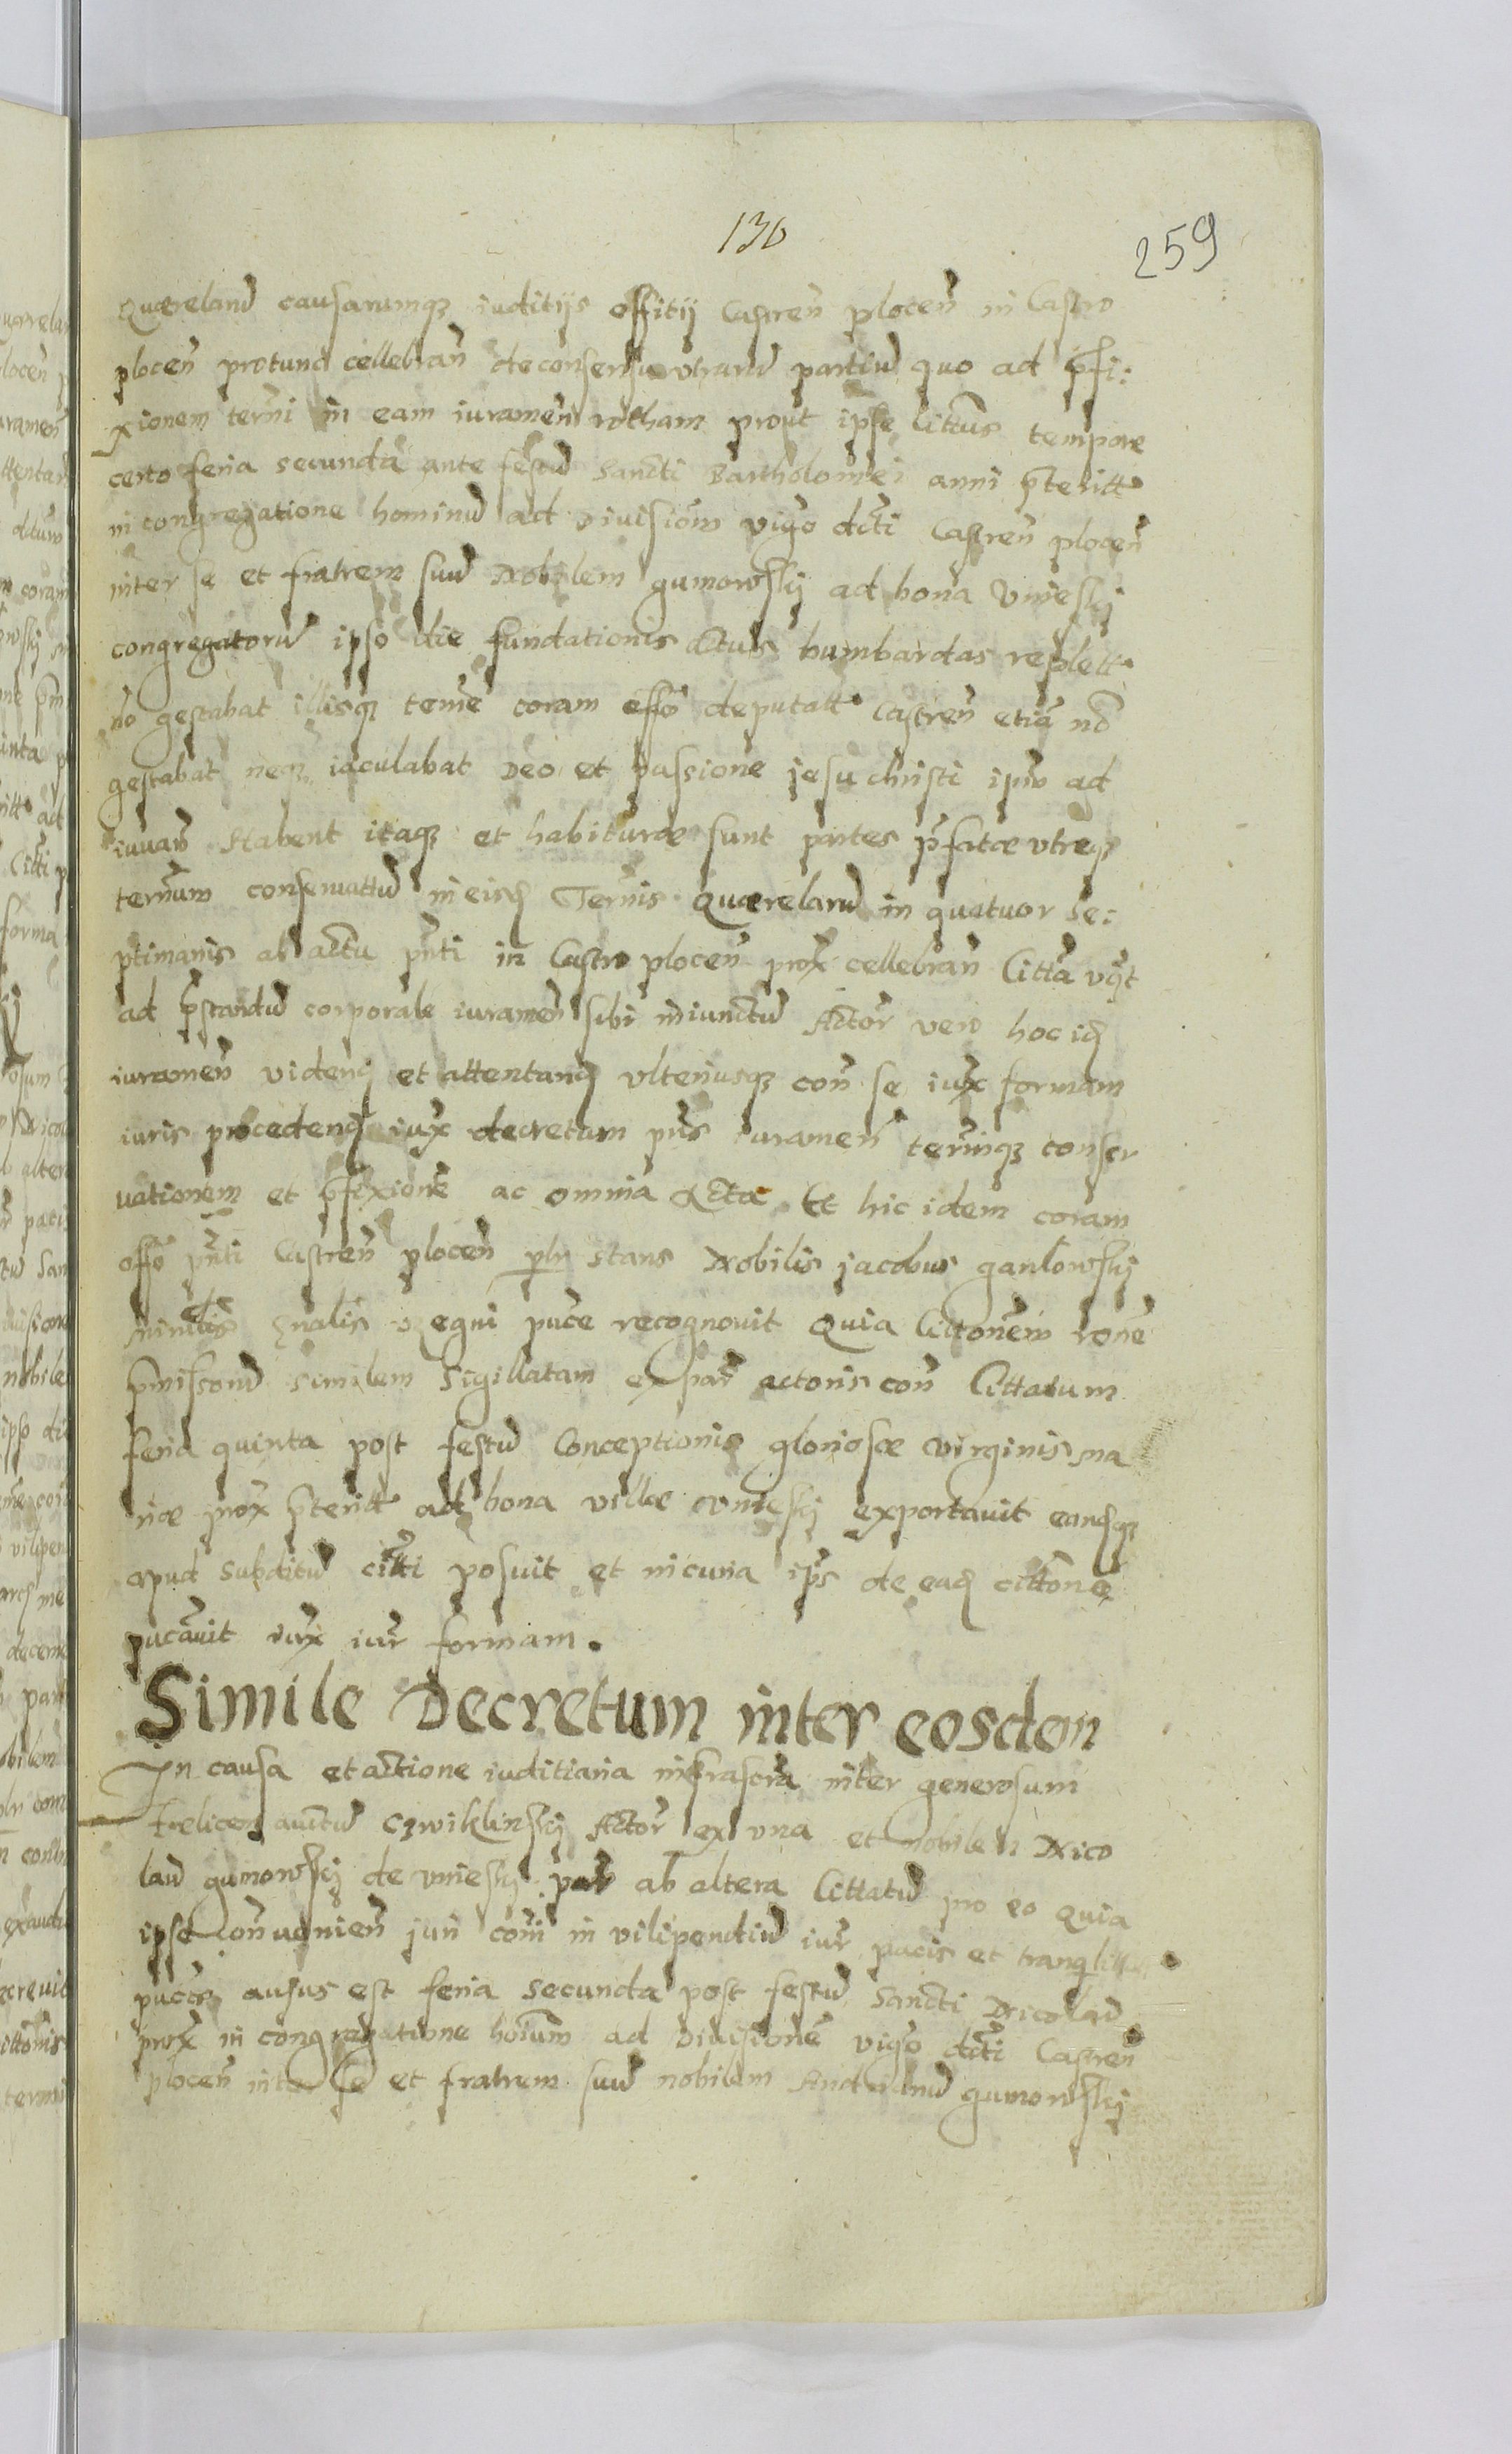 130
259
Quærelarū causarumqꝫ iuditijs offitij Castreñ ploceñ in Castro
ploceñ protunc cellebrañ de consensu vtrarū partiū quo ad p̄fi:
xionem termi in eam iurameñ rotham prout ipse Cittus tempore
certo feria secunda ante festū Sancti Bartholomei anni p̄teritt
in congregatione hominū ad Diuisiom vigo dicti Castreñ ploceñ
inter se et fratrem suū Nobilem gumowskj ad bona Vmieskj
congregatorū ipso die fundationis Actus bumbardas replett
no gestabat illisqꝫ teme coram offo deputatt Castreñ etiā nō
gestabat neqꝫ iaculabat Deo et passione jesu christi ipm̄ ad
iuvañ Habent itaqꝫ et habituræ sunt partes p̄fatæ vtreqꝫ
termum conseruattū in eisd Termis Quærelarū in quatuor se:
ptimanis ab actu pn̄ti in Castro ploceñ prox cellebrañ Citta
ad p̄standū corporale iurameñ sibi iniunctū Actor vero hoc id
iurameñ videnđ et attentanđ vlteriusqꝫ coñ se iux formam
iuris procedenđ iux decretum pñs iurameñ termiqꝫ conser
uationem et p̄fixione ac omnia Acta Et hic idem coram
offo pñti Castreñ ploceñ plr stans Nobilis jacobus garlowskj
minrlis gnalis Regni puce recognouit Quia Cittonem rone
p̄missorū similem Sigillatam ex par actoris coñ Cittatum
feria quinta post festū Conceptionis gloriosæ virginis ma
riæ prox p̄teritt ad bona villæ vmieskj exportauit eandqꝫ
apud subditū citti posuit et in curia ips de eađ cittone
pucauit iux iur formam.
Simile Decretum inter eosdem
In causa et actione iuditiaria infrascra inter generosum
Felicem auctū Czwiklinskj Actor ex vna et nobilem Nico
laū gumowskj de vmieskj par ab altera Cittatū pro eo Quia
ipse Conuenien juri comi in vilipendiū iur pacis et tranq
puceqꝫ ausus est feria secunda post festū Sancti Nicolai
prox in congregatione hoium ad Diuisione vigo dicti Castreñ
ploceñ inter se et fratrem suū nobilem Andream gumowskj